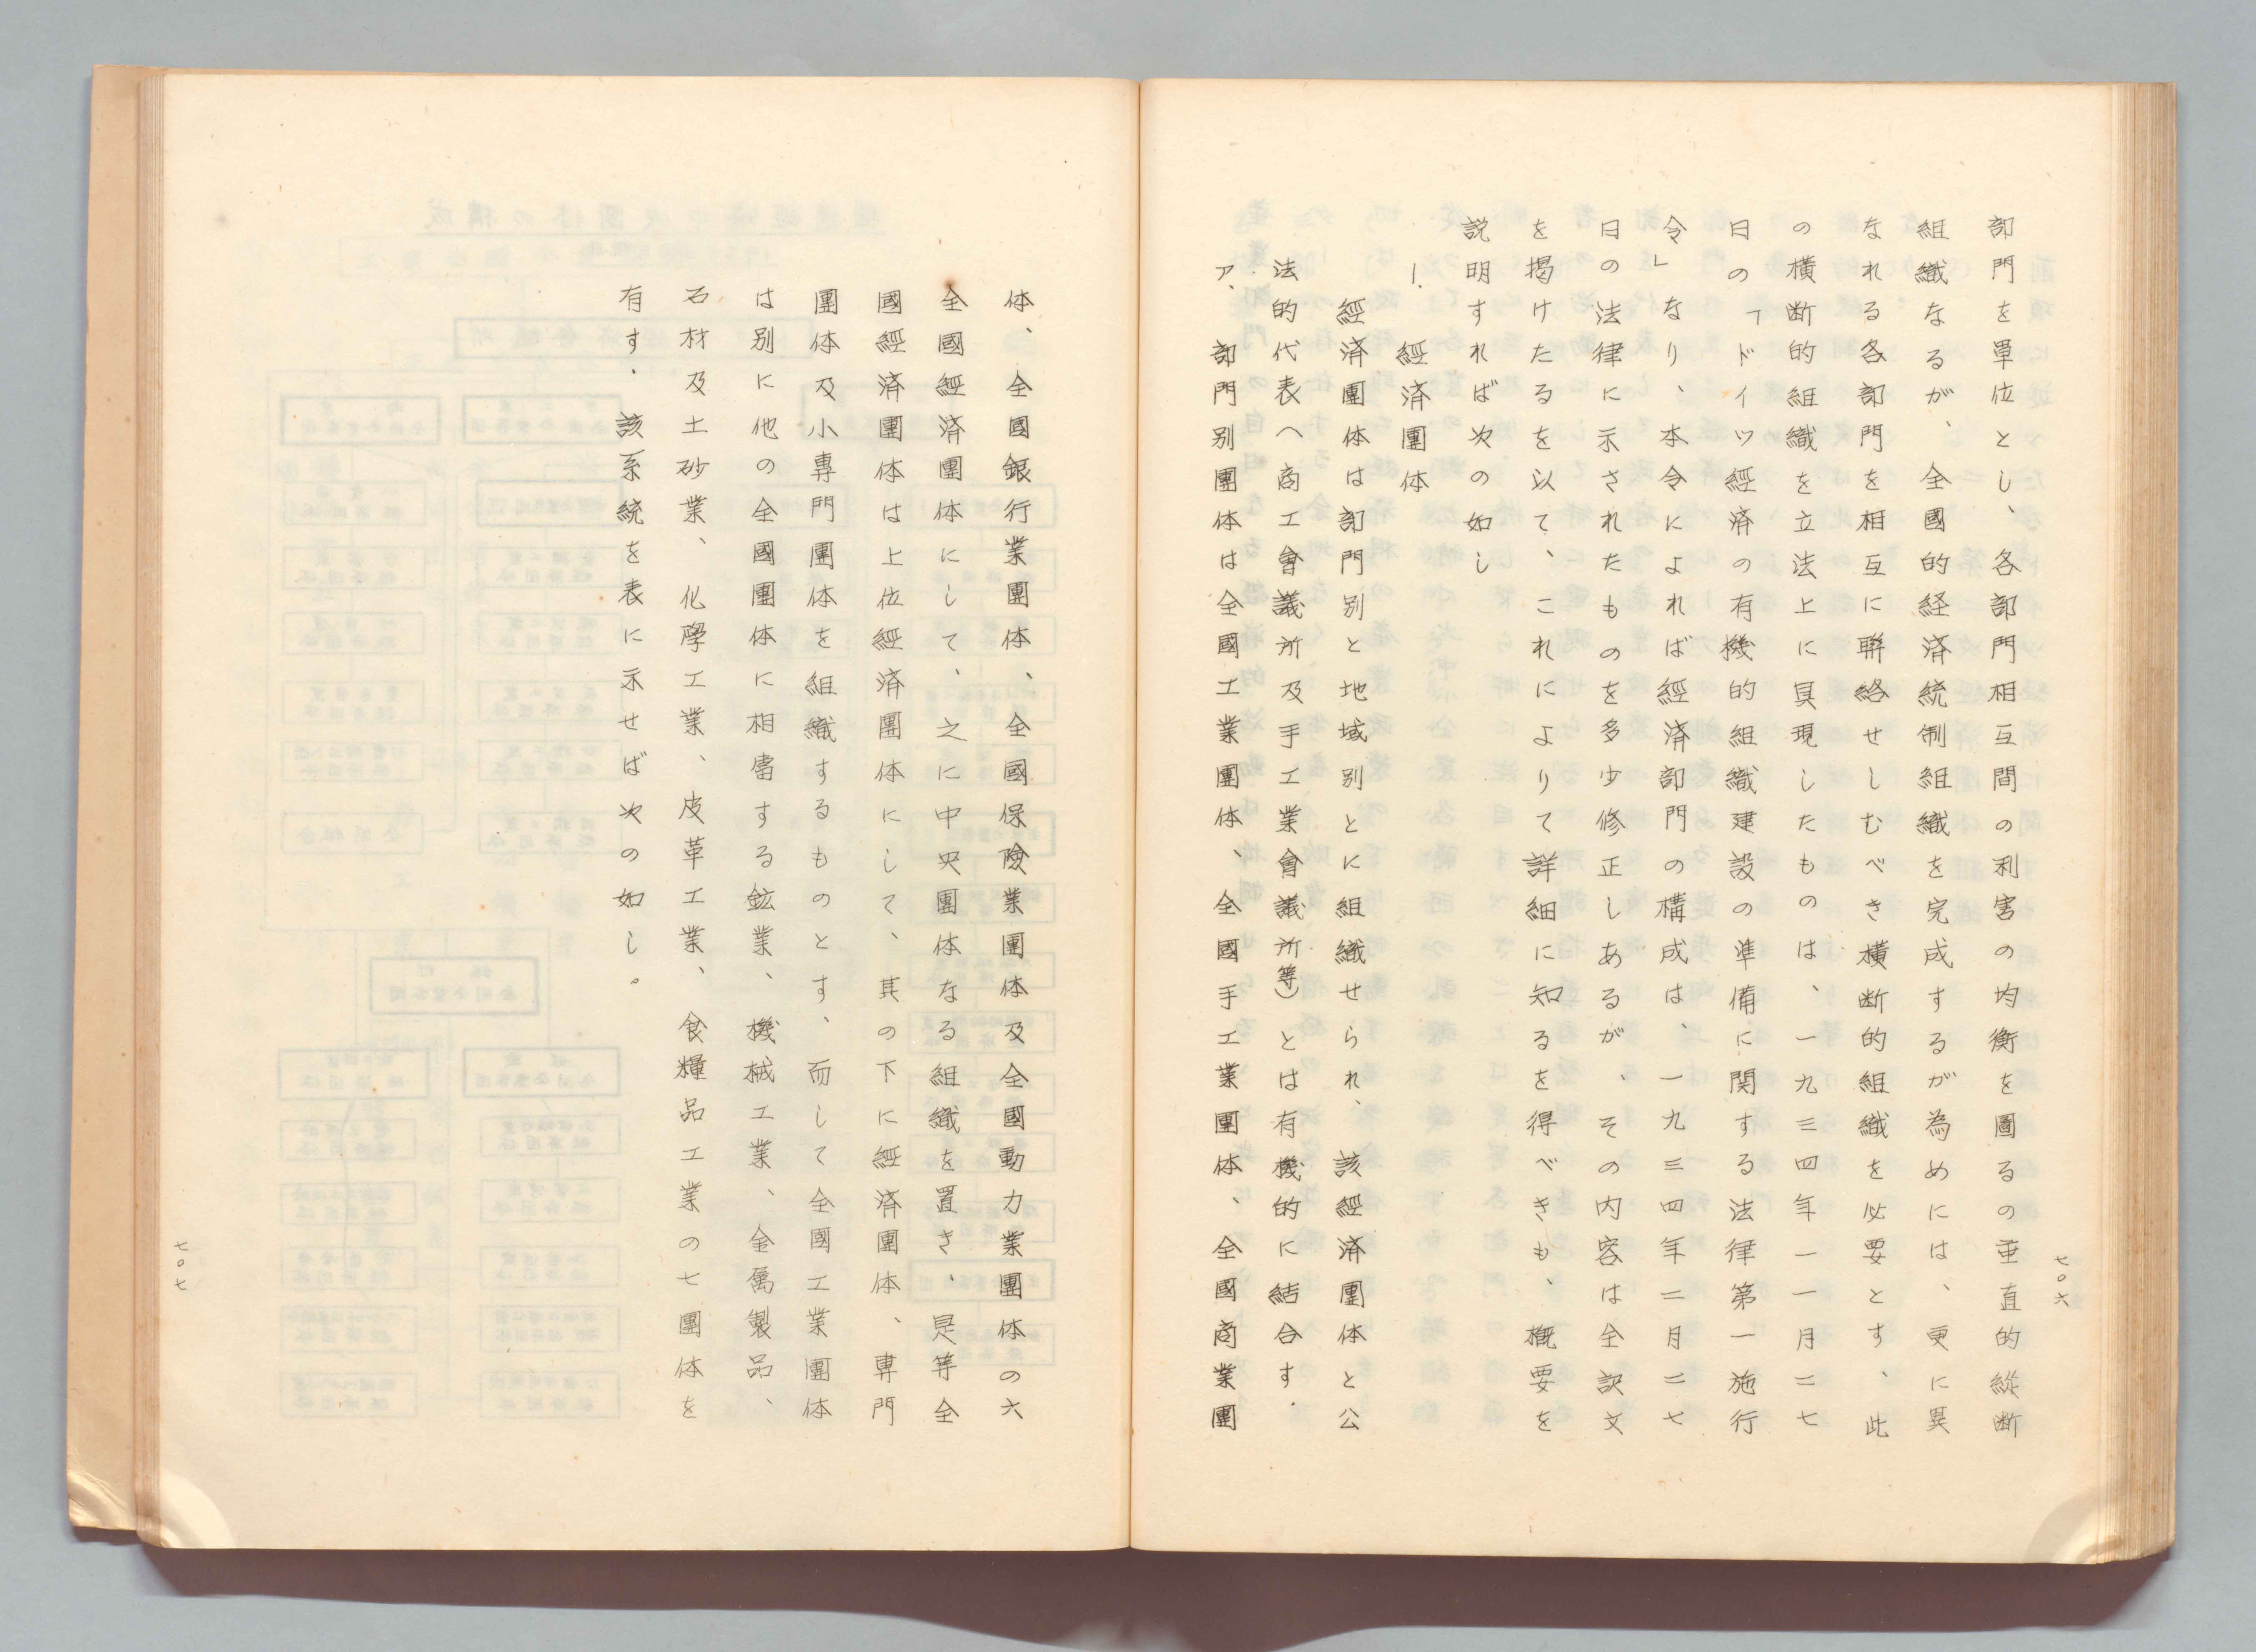 部門を單位とし、各部門相互間の利害の均衡を圖るの垂直的縱断
組織なるが、全國的経済統制組織を完成するが為めには、更に異
なれる各部門を相互に聯絡せしむべき橫断的組織を必要とす、此
の橫断的組織を立法上に具現したものは、一九三四年一一月二七
日の「ドイツ經済の有機的組織建設の準備に関する法律第一施行
令」なり、本令によれば經済部門の構成は、一九三四年二月二七
日の法律に示されたものを多少修正しあるが、その内容は全訳文
を揭けたるを以て、これによりて詳細に知るを得べきも、概要を
説明すれば次の如し
1. 經済團体
經済團体は部門別と地域別とに組織せられ、該經済團体と公
法的代表へ商工會議所及手工業會議所等)とは有機的に結合す.
ア、部門別團体は全國工業團体、全國手工業團体、全國商業團
七〇六
体、全國銀行業團体、全國保險業團体及全國動力業團体の六
全國經済團体にして、之に中央團体なる組織を置き、是等全
國經済團体は上位經済團体にして、其の下に經済團体、專門
團体及小專門團体を組織するものとす、而して全國工業團体
は別に他の全國團体に相當する鉱業、機械工業、金属製品、
石材及土砂業、化學工業、皮革工業、食糧品工業の七團体を
有す.該系統を表に示せば次の如し。
七〇七